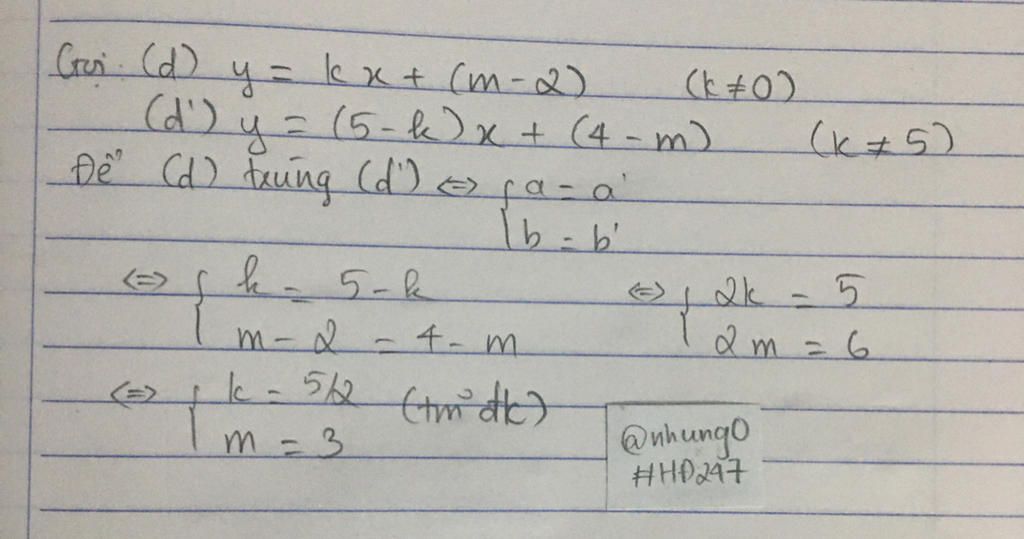 Gọi: (d) y = kx + (m - 2) (k ≠ 0)
(d') y = (5 - k)x + (4 - m) (k ≠ 5)
Để (d) trùng (d') <=> { a = a'
b = b'
<=> { k = 5 - k <=> { 2k = 5
m - 2 = 4 - m 2m = 6
<=> { k = 5/2 (tm đk)
m = 3
@nhung0
#HĐ247